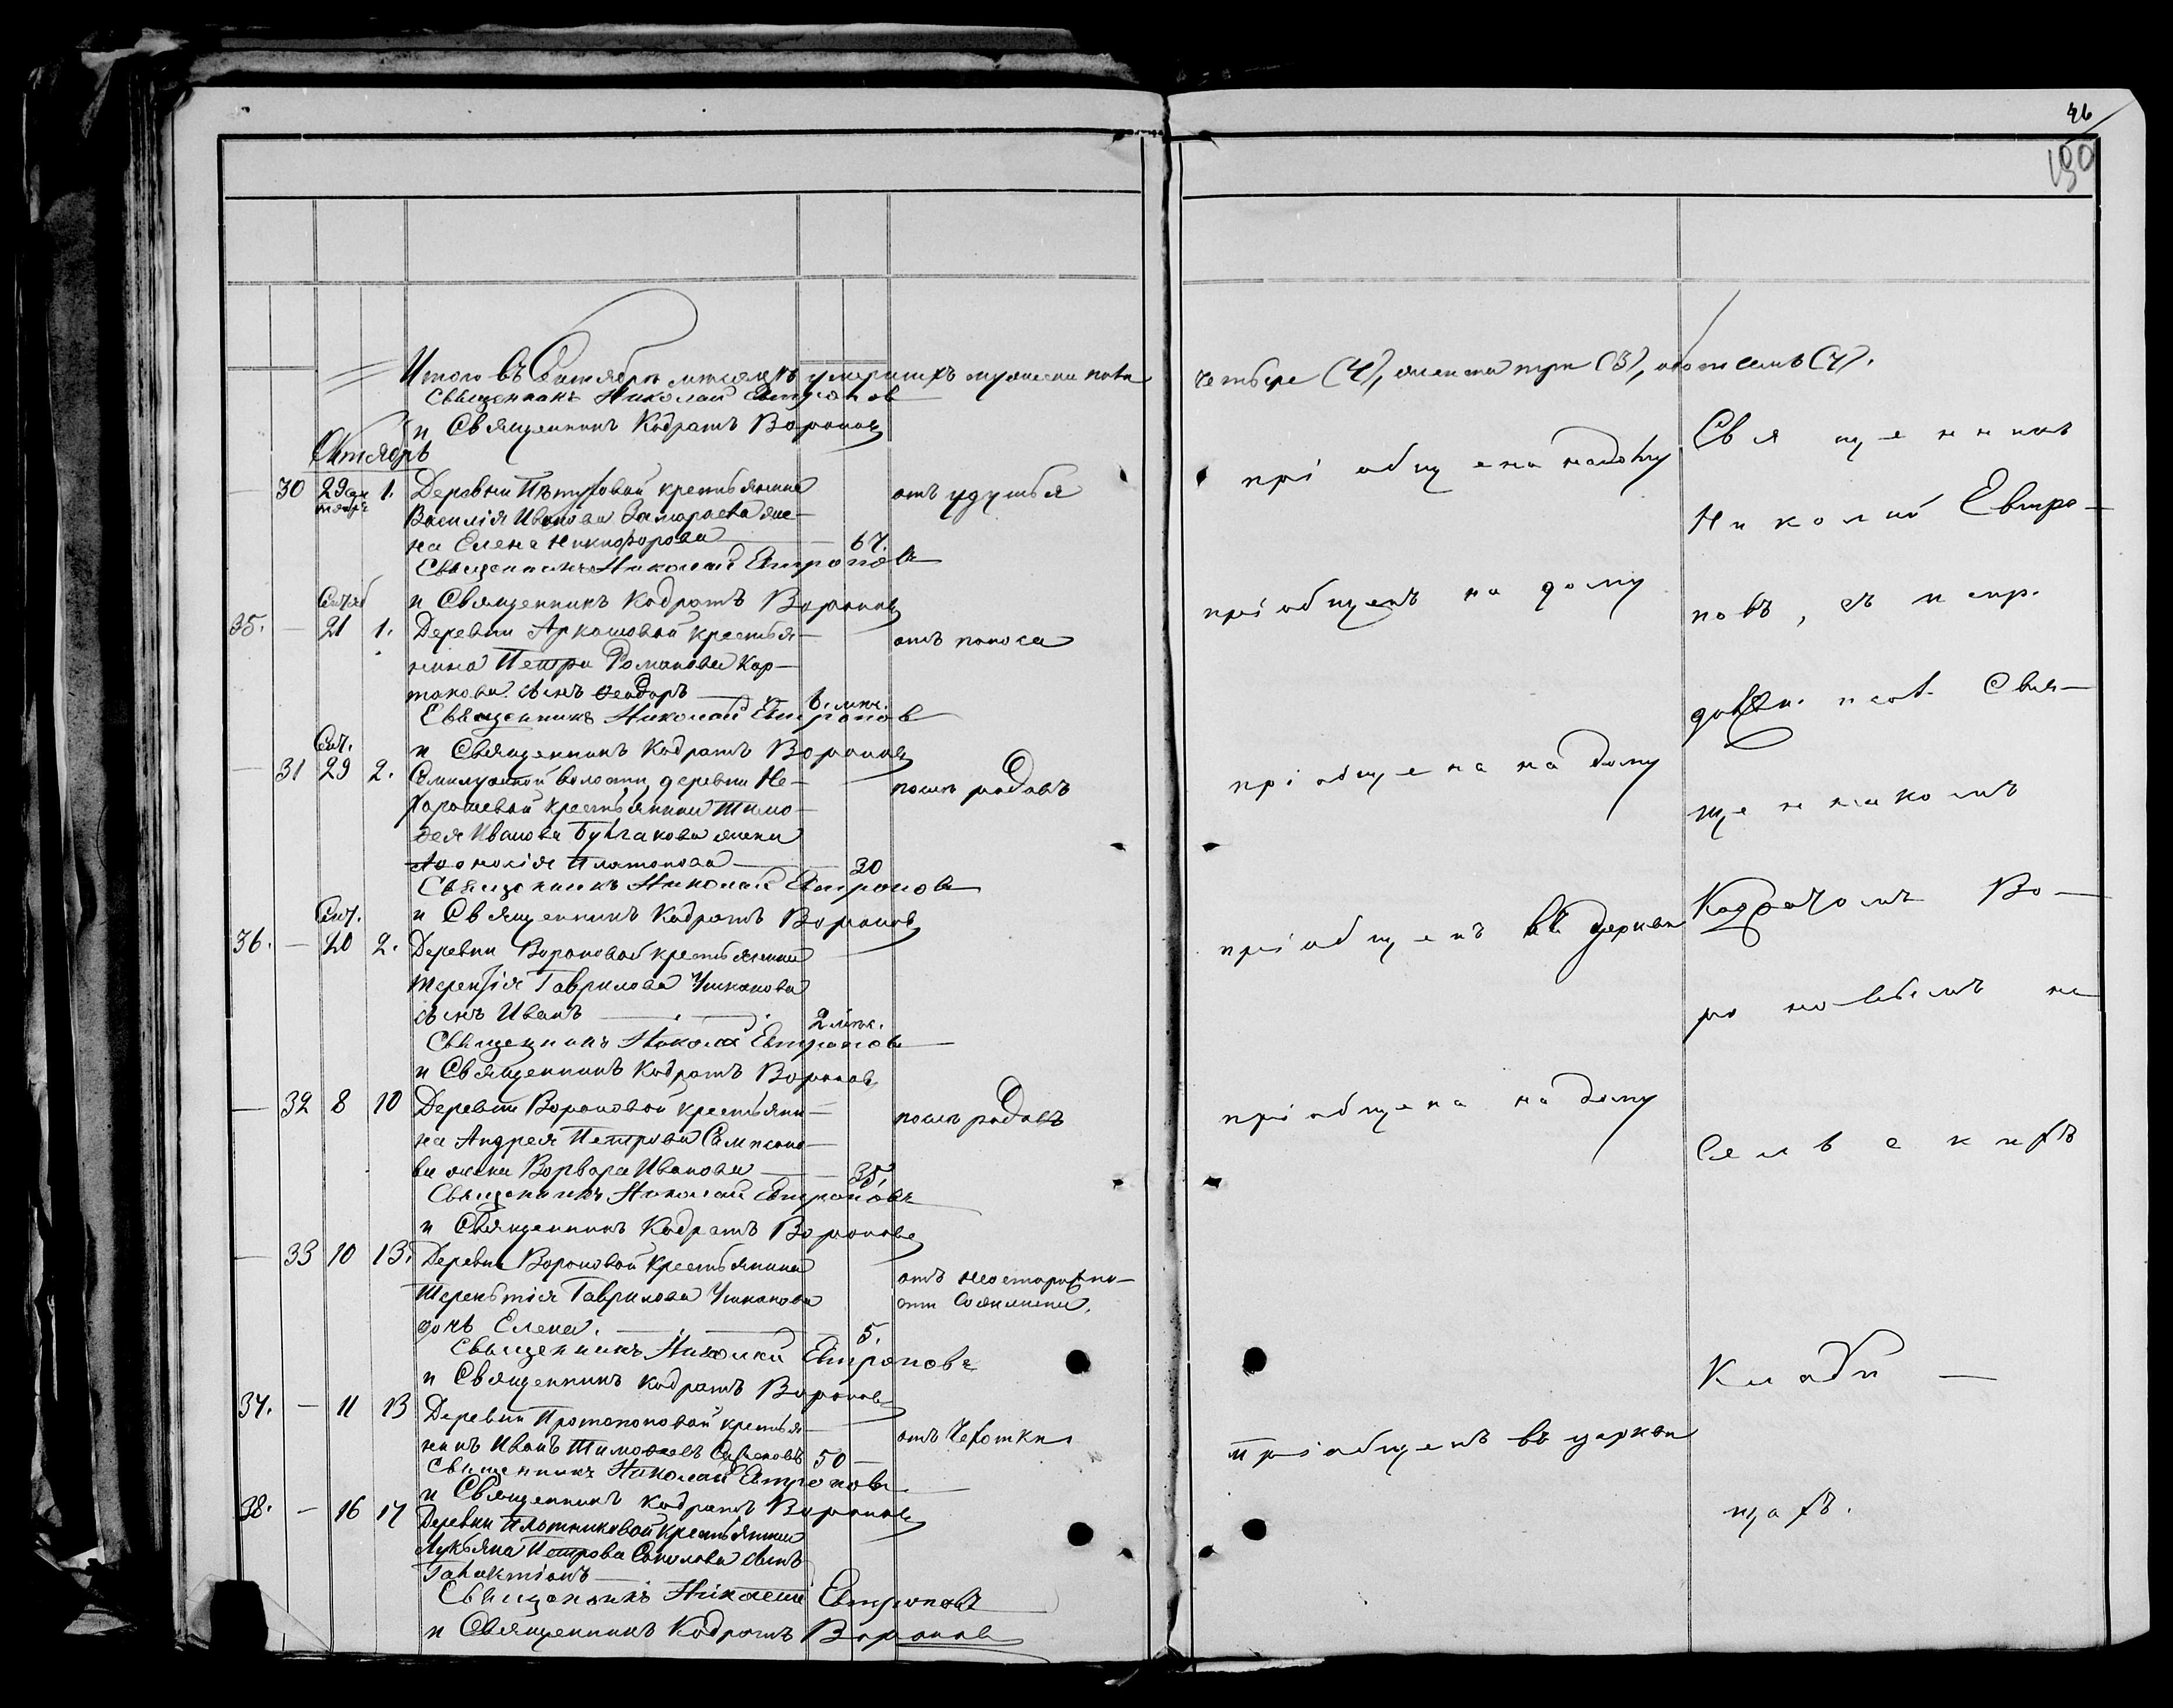 46
190
Итого въ Сентябрѣ мѣсяцѣ умершихъ мужеска пола четыре (4), женска три (3), обоего семь (7).
Священникъ Николай Евтропов
и Священникъ Кодратъ Воронов
Октябрь
— 30 29 сентября 1. Деревни Пѣтуховой крестьянина отъ удушья пріобщена на дому
Василія Иванова Замараева же-
на Елена Никифорова — 67.
Священникъ Николай Евтропов
и Священникъ Кодратъ Воронов
35. — Сент. 21 1. Деревни Аркашовой крестья- отъ поноса пріобщенъ на дому
нина Петра Романова Кор-
такова сынъ Ѳеодоръ — 6. мѣс.
Священникъ Николай Евтропов
и Священникъ Кодратъ Воронов
— 31 Сент. 29 2. волости, деревни Не- послѣ родовъ пріобщена на дому
хорошевой крестьянина Тимо-
фея Иванова Булгакова жена
Платонова — 30
Священникъ Николай Евтропов
и Священникъ Кодратъ Воронов
36. — Сент. 20 2. Деревни Вороновой крестьянина пріобщенъ въ церкви
Терентія Гаврилова Ушкакова
сынъ Иванъ — 2 мѣс.
Священникъ Николай Евтропов
и Священникъ Кодратъ Воронов
— 32 8 10 Деревни Вороновой крестьяни- послѣ родовъ пріобщена на дому
на Андрея Петрова Сампсоно-
ва жена Ворвара Иванова — 35.
Священникъ Николай Евтроповъ
и Священникъ Кодратъ Воронов
— 33 10 13. Деревни Вороновой крестьянина отъ неосторожно-
Терентія Гаврилова Ушкакова сти
дочь Елена. — 5.
Священникъ Николай Евтропов
и Священникъ Кодратъ Воронов
37. — 11 13 Деревни Протопоповой крестья- отъ Чехотки пріобщенъ въ церкви
нинъ Иванъ Тимофеевъ 50 —
Священникъ Николай Евтропов
и Священникъ Кодратъ Воронов
38. — 16 17 Деревни Плотниковой крестьянина
Лукьяна Петрова Соколова сынъ
Галактіонъ —
Священникъ Николай Евтроповъ
и Священникъ Кодратъ Воронов
Священникъ
Николай Евтро-
повъ, съ
Свя-
щенникомъ
Кодратомъ Во-
роновымъ на
Сельскихъ
Кладби-
щахъ.